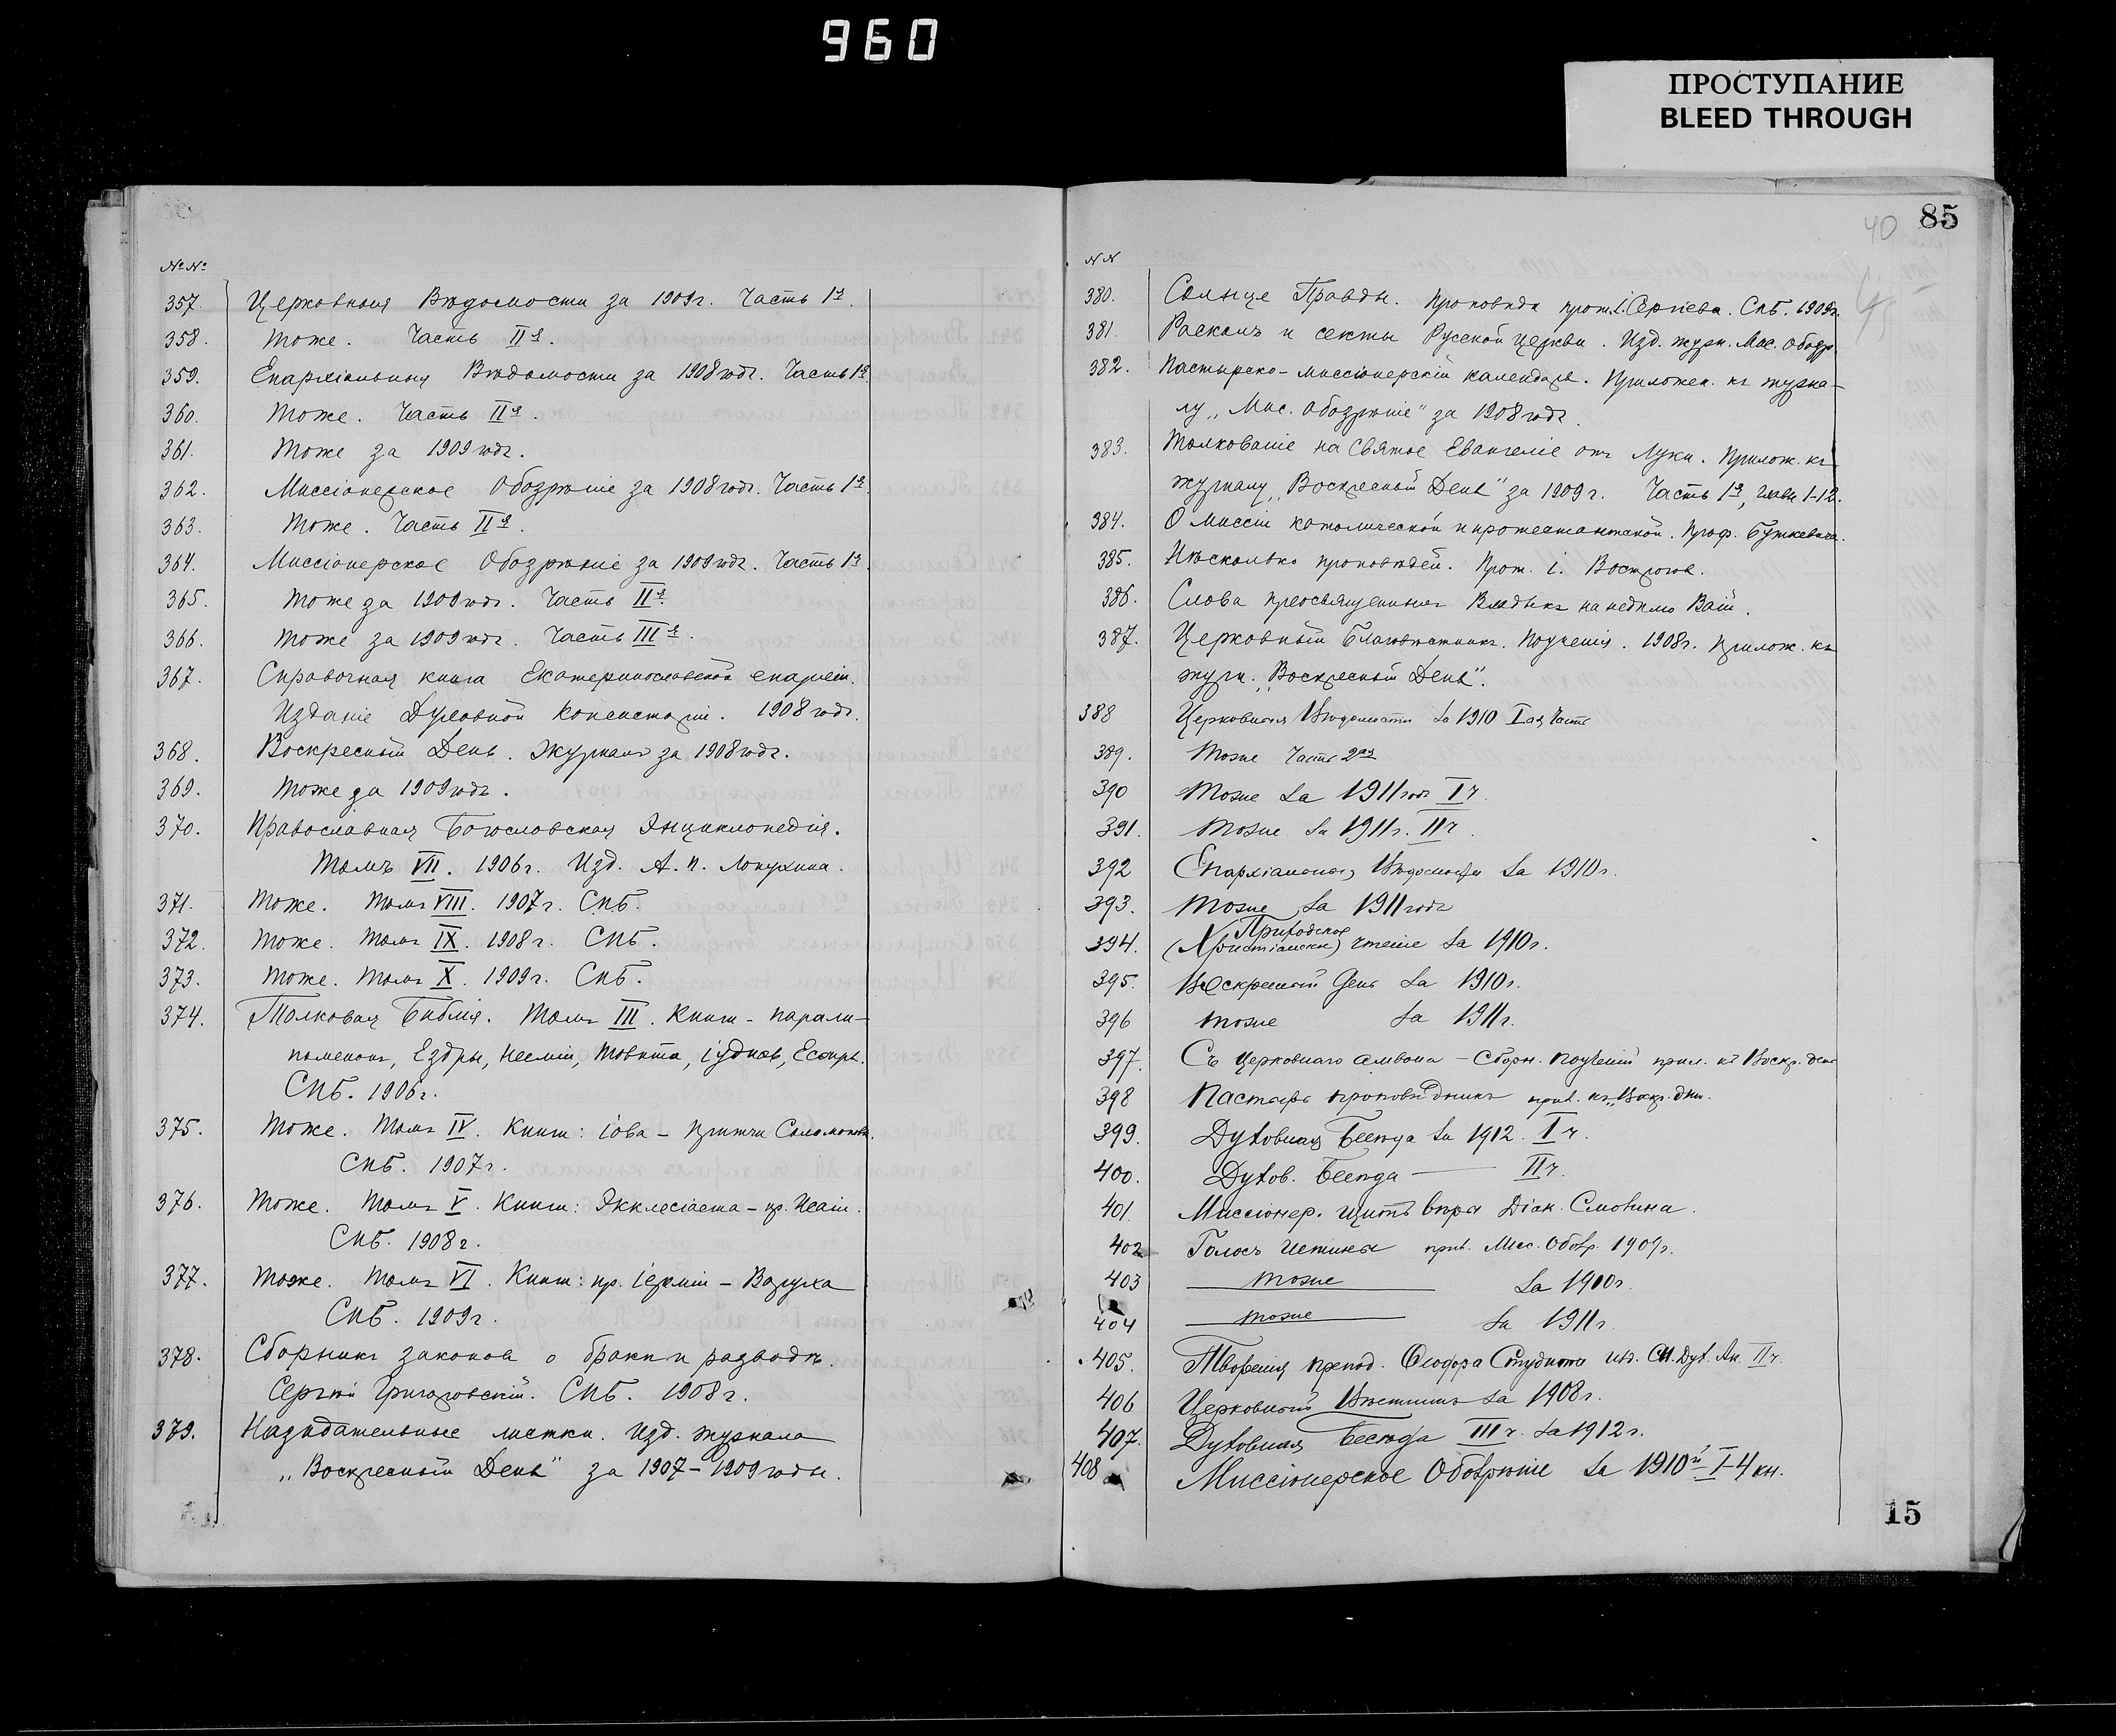 960
ПРОСТУПАНИЕ
BLEED THROUGH
85
40
№№
357. Церковныя Вѣдомости за 1909г. Часть Iя.
358. Тоже. Часть IIя.
359. Епархіальныя Вѣдомости за 1908 годъ. Часть Iя.
360. Тоже. Часть IIя.
361. Тоже за 1909 годъ.
362. Миссіонерское Обозрѣніе за 1908 годъ. Часть Iя.
363. Тоже. Часть IIя.
364. Миссіонерское Обозрѣніе за 1909 годъ. Часть Iя.
365. Тоже за 1909 годъ. Часть IIя.
366. Тоже за 1909 годъ. Часть IIIя.
367. Справочная книга Екатеринославской епархіи.
Изданіе Духовной Консисторіи. 1908 годъ.
368. Воскресный День. Журналъ за 1908 годъ.
369. Тоже за 1909 годъ.
370. Православная Богословская Энциклопедія.
Томъ VII. 1906г. Изд. А. П. Лопухина.
371. Тоже. Томъ VIII. 1907г. СПБ.
372. Тоже. Томъ IX. 1908г. СПБ.
373. Тоже. Томъ X. 1909г. СПБ.
374. Толковая Библія. Томъ III. Книги - парали-
поменонъ, Ездры, Нееміи, Товита, Іудиѳь, Есѳирь.
СПБ. 1906г.
375. Тоже. Томъ IV. Книги: Іова - Притчи Соломоновы.
СПБ. 1907г.
376. Тоже. Томъ V. Книги: Экклесіаста - пр. Исаіи.
СПБ. 1908г.
377. Тоже. Томъ VI. Книги: пр. Іереміи - Варуха
СПБ. 1909г.
378. Сборникъ законовъ о бракѣ и разводѣ.
Сергѣй Григоровскій. СПБ. 1908г.
379. Назидательные листки. Изд. журнала
„Воскресный День" за 1907-1909 годы.
NN
380. Солнце Правды. Проповѣди прот. І. Сергіева. СПБ. 1909г.
381. Расколъ и секты Русской Церкви. Изд. журн. Мис. Обозр.
382. Пастырско-миссіонерскій календарь. Приложен. къ журна-
лу „Мис. Обозрѣніе" за 1908 годъ.
383. Толкованіе на Святое Евангеліе отъ Луки. Прилож. къ
журналу „Воскресный День" за 1909г. Часть Iя, главы 1-12.
384. О миссіи католической и протестантской. Проф. Буткевича.
385. Нѣсколько проповѣдей. Прот. І. Восторгов.
386. Слова преосвященныхъ Владыкъ на недѣлю Ваій.
387. Церковный Благовѣстникъ. Поученія. 1908г. Прилож. къ
журн. „Воскресный День".
388 Церковныя Вѣдомости за 1910 Iая часть
389. Тоже Часть 2ая
390 Тоже за 1911 годъ I ч.
391. Тоже за 1911г. II ч.
392 Епархіальныя Вѣдомости за 1910г.
393. Тоже за 1911 годъ
Приходское
394. (Христіанск.) чтеніе за 1910г.
395. Воскресный День за 1910г.
396 тоже за 1911г.
397. Съ церковнаго амвона - Сборн. поученій прил. къ Воскр. дню
398 Пастырь проповѣдникъ прил. къ „Воскр. дню.
399. Духовная Бесѣда за 1912. I ч.
400. Духов. Бесѣда — II ч.
401. Миссіонер. щитъ вѣры Діак. Смолина.
402 Голосъ истины прил. Мис. Обозр. 1909г.
403 тоже за 1910г.
404 тоже за 1911г.
405. Творенія препод. Ѳеодора Студита изд. СП. Дух. Ак. II ч.
406 Церковный Вѣстникъ за 1908г.
407. Духовная Бесѣда III ч. за 1912г.
408 Миссіонерское Обозрѣніе за 1910й I-4 кн.
15